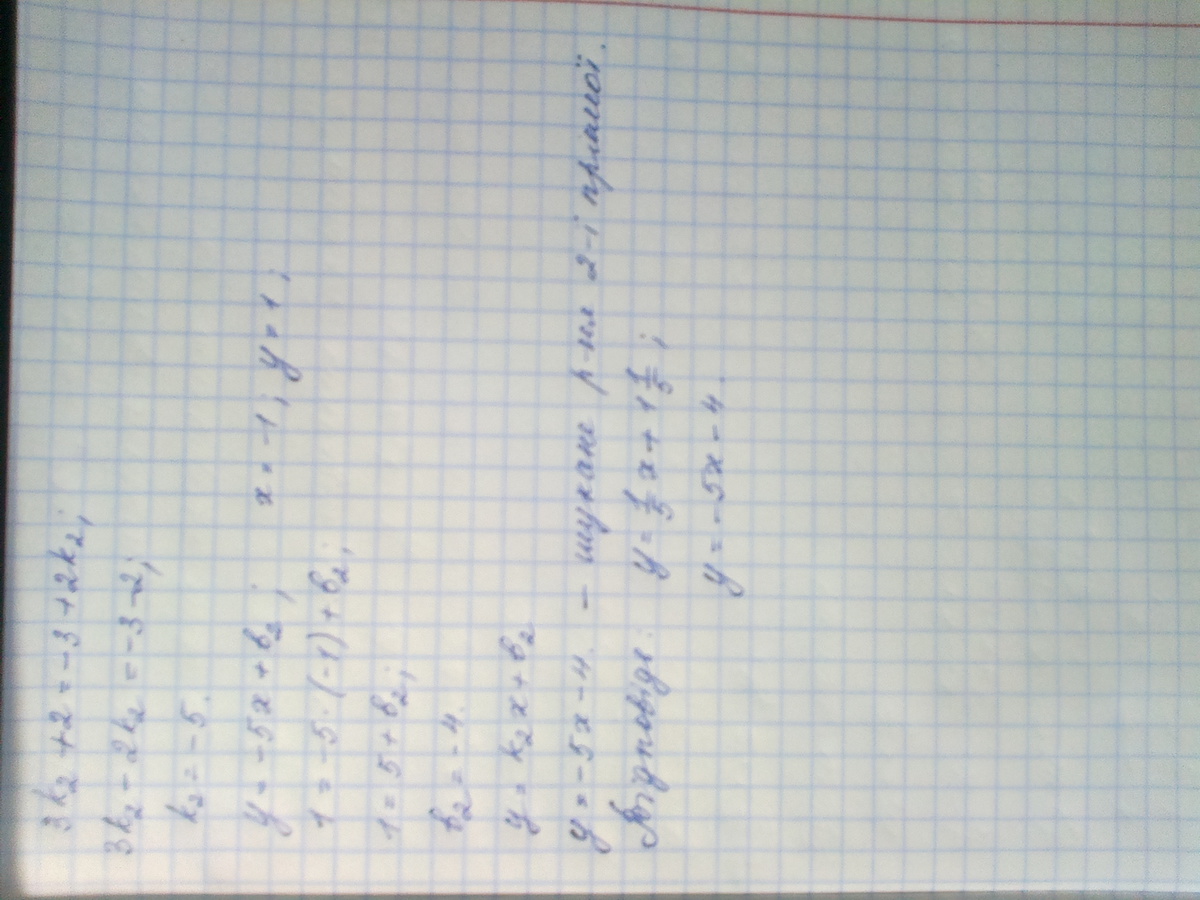 3k₂ + 2 = -3 + 2k₂;
3k₂ - 2k₂ = -3 - 2;
k₂ = -5.
y = -5x + b₂; x = -1; y = 1;
1 = -5 · (-1) + b₂;
1 = 5 + b₂;
b₂ = -4.
y = k₂x + b₂
y = -5x - 4. - шукане р-ня 2-ї прямої.
Відповідь: y = 1/5 x + 1 1/5;
y = -5x - 4.